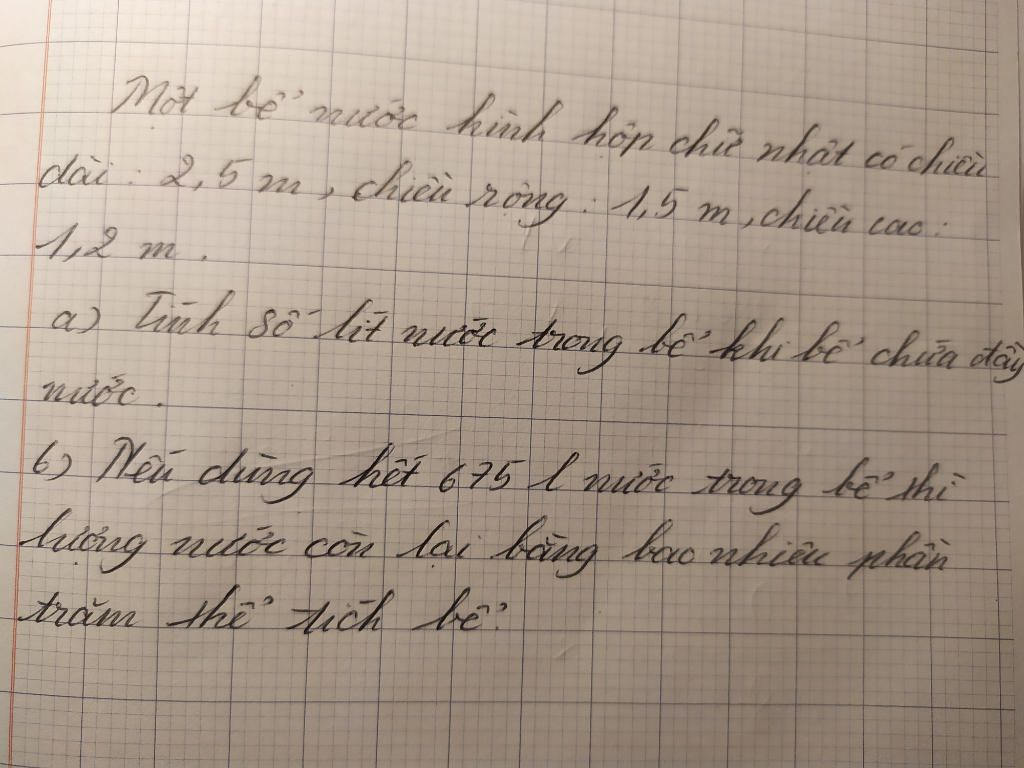 Một bể nước hình hộp chữ nhật có chiều
dài: 2,5 m, chiều rộng: 1,5 m, chiều cao:
1,2 m.
a) Tính số lít nước trong bể khi bể chứa đầy
nước.
b) Nếu dùng hết 675 l nước trong bể thì
lượng nước còn lại bằng bao nhiêu phần
trăm thể tích bể.